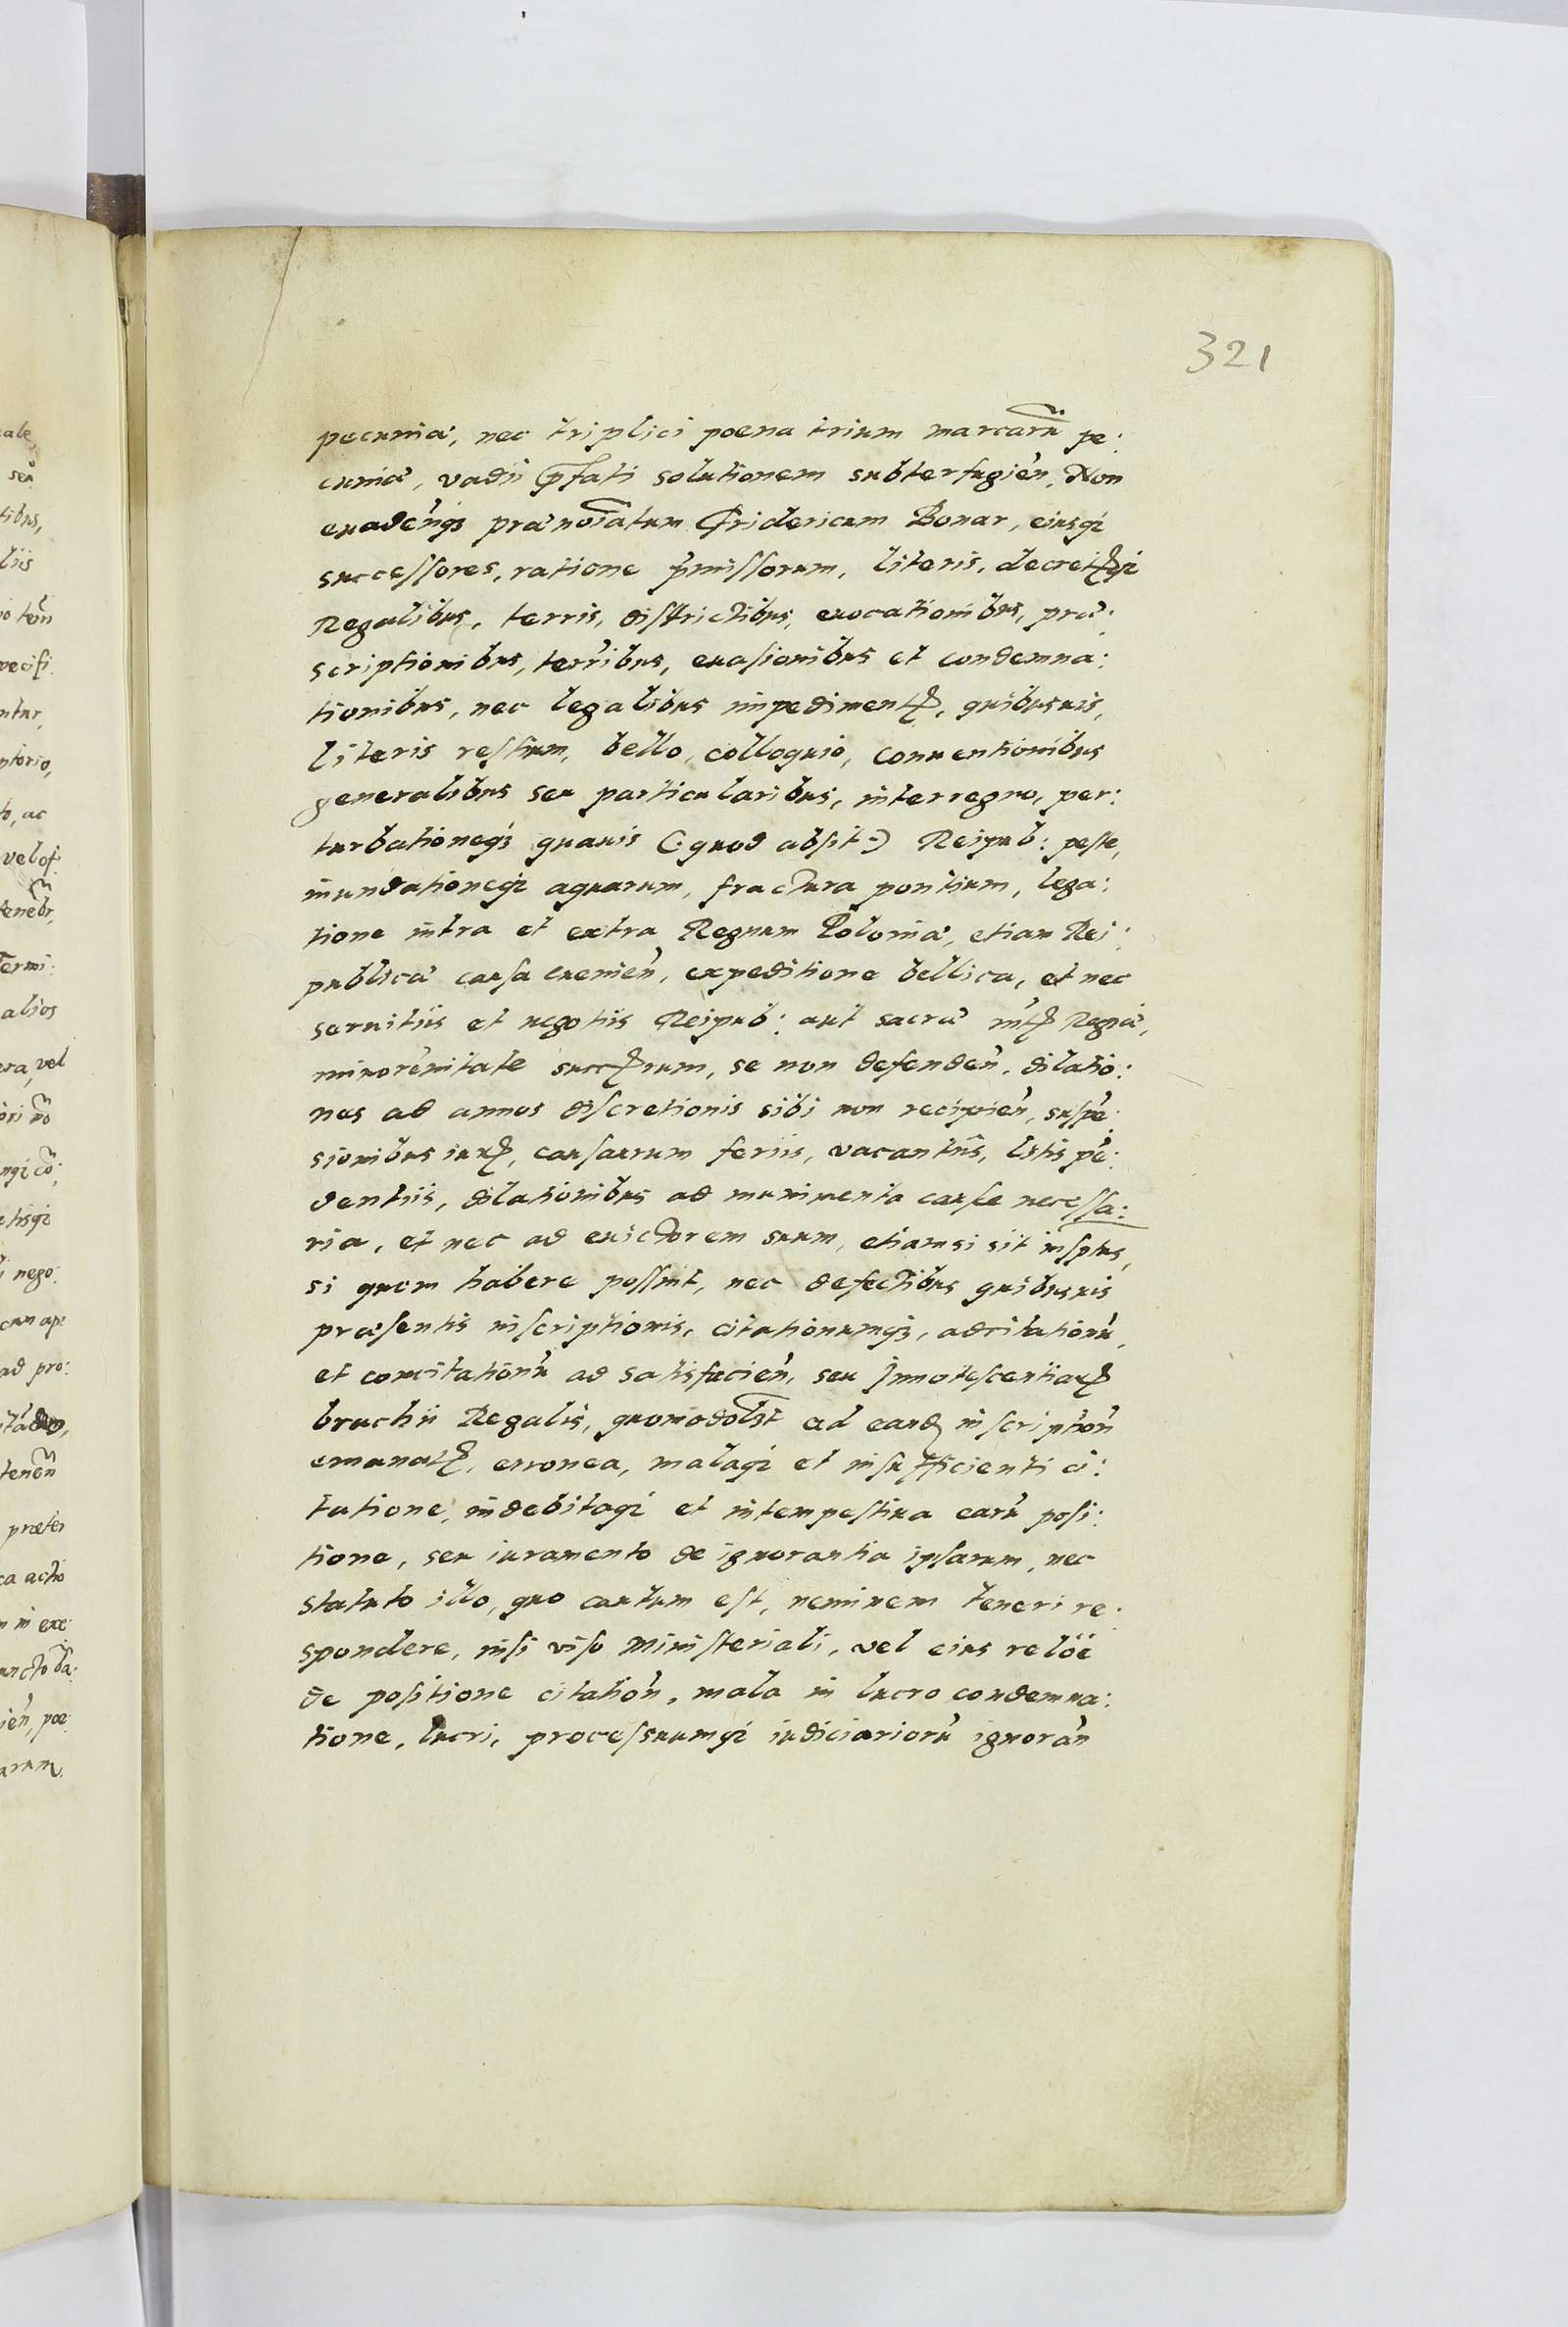 ale,
seu
tibus,
liis
io ten̄
pecifi:
ntur,
ptorio,
to, ac
vel of:
teneb̄r,
Termi:
alios
ra, vel
ngꝫ cō:
etisqꝫ
i nego:
cum ap:
ad pro:
tenen̄
præter
ca actio
m in exe:
uncto ba:
ien̄, poe:
arum,
321
pecuniæ, nec triplici poena trium marcarū pe:
cuniæ, vadii p̄fati solutionem subterfugien̄. Non
euaden̄qꝫ prænoīatum Fridericum Bonar, eiusqꝫ
successores, ratione p̄missorum, literis, decretꝭqꝫ
Regalibus, terris, districtibus, euocationibus, præ:
scriptionibus, terr̄ibus, euasionibus et condemna:
tionibus, nec legalibus impedimentꝭ, quibusuis,
literis restium, bello, colloquio, conuentionibus
generalibus seu particularibus, interregno, per:
turbationeqꝫ quauis (: quod absit :) Reipub: peste,
inundationeqꝫ aquarum, fractura pontium, lega:
tione intra et extra Regnum Poloniæ, etiam Rei:
publicæ causa euenien̄, expeditione bellica, et nec
seruitiis et negotiis Reipub: aut sacræ m̄tꝭ Regiæ,
minorēnitate succꝭrum, se non defenden̄, dilatio:
nes ad annos discretionis sibi non recipien̄, suspē:
sionibus iurꝭ, causarum feriis, vacantiis, litis pē:
dentiis, dilationibus ad munimenta causæ necessa:
ria, et nec ad euictorem suum, etiamsi sit insptus,
si quem habere possint, nec defectibus quibusuis
præsentis inscriptionis, citationumqꝫ, adcitationū,
et concitationū ad satisfacien̄, seu Innotescentiarꝭ
brachii Regalis, quomodolꝫt ad eandꝭ inscription̄
emanatꝭ, erronea, malaqꝫ et insufficienti ci:
tatione, indebitaqꝫ et intempestiua earū posi:
tione, seu iuramento de ignorantia ipsarum, nec
statuto illo, quo cautum est, neminem teneri re:
spondere, nisi viso Ministeriali, vel eius relōe
de positione citation̄, mala in lucro condemna:
tione, lucri, processuumqꝫ iudiciariorū ignoran̄